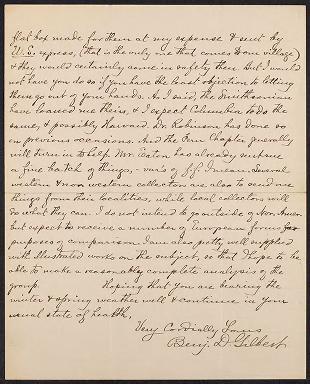 flat box made for them at my expense & sent by
U.S. express, (that is the only one that comes to our village)
& they would certainly come in safety then. But I would
not have you do so if you have the least objection to letting
them go out of your hands. As I said, the Smithsonian
have loaned me theirs, & I expect Columbia to do the
same, & possibly Harvard. Dr. Robinson has done so
on previous occasions. And the Fern Chapter generally
will turn in to help. Mr. Eaton has already sent me
a fine batch of things, - vars of Several
western & non western collectors are also to send me
things from their localities, while local collectors will
do what they can. I do not intend to go outside of Nor. Amer.
but expect to receive a number of European forms for
purposes of comparison. I am also pretty well supplied
with illustrated works on the subject, so that I hope to be
able to make a reasonably complete analysis of the
group. Hoping that you are bearing the
winter & spring weather well & continue in your
usual state of health,
Very Cordially Yours
Benj. D. Gilbert